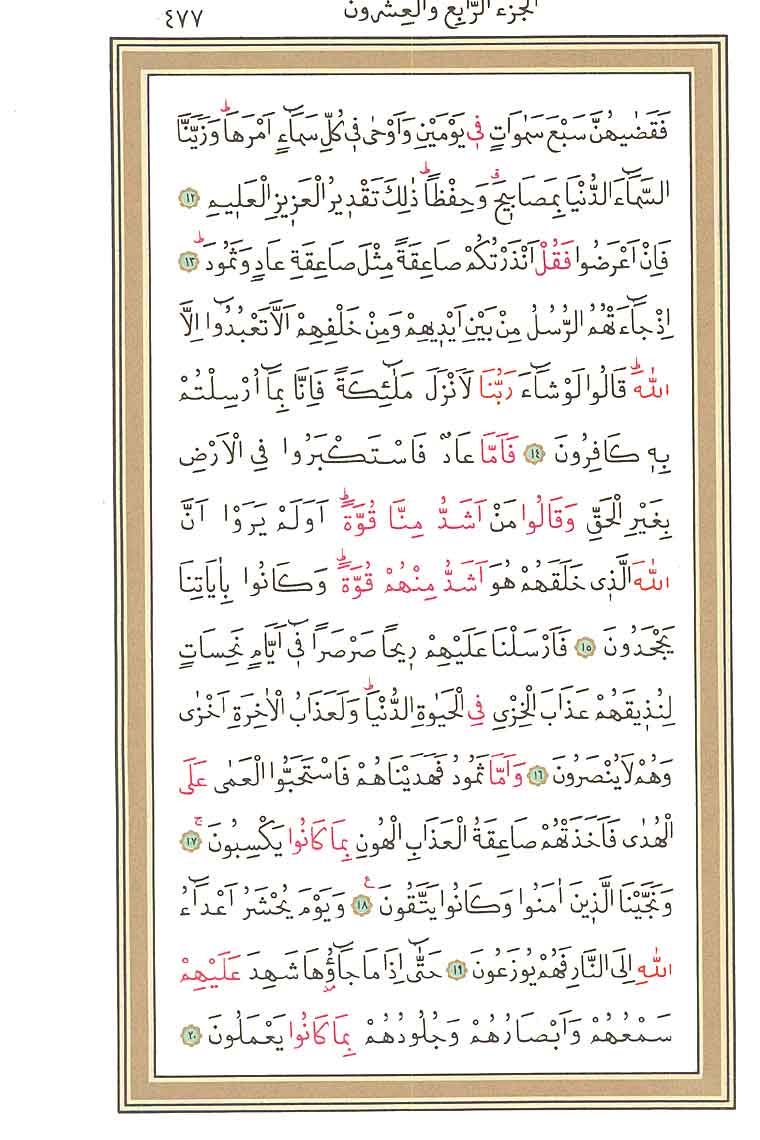 الجزء الرابع والعشرون ٤٧٧
فَقَضٰيهُنَّ سَبْعَ سَمٰوَاتٍ فِي يَوْمَيْنِ وَاَوْحٰى فِي كُلِّ سَمَٓاءٍ اَمْرَهَاۜ وَزَيَّنَّا
السَّمَٓاءَ الدُّنْيَا بِمَصَابِيحَۗ وَحِفْظاًۜ ذٰلِكَ تَقْدِيرُ الْعَزِيزِ الْعَلِيمِ ١٢
فَاِنْ اَعْرَضُوا فَقُلْ اَنْذَرْتُكُمْ صَاعِقَةً مِثْلَ صَاعِقَةِ عَادٍ وَثَمُودَۜ ١٣
اِذْ جَٓاءَتْهُمُ الرُّسُلُ مِنْ بَيْنِ اَيْدِيهِمْ وَمِنْ خَلْفِهِمْ اَلَّا تَعْبُدُٓوا اِلَّا
اللّٰهَۜ قَالُوا لَوْ شَٓاءَ رَبُّنَا لَاَنْزَلَ مَلٰٓئِكَةً فَاِنَّا بِمَٓا اُرْسِلْتُمْ
بِهِ كَافِرُونَ ١٤ فَاَمَّا عَادٌ فَاسْتَكْبَرُوا فِي الْاَرْضِ
بِغَيْرِ الْحَقِّ وَقَالُوا مَنْ اَشَدُّ مِنَّا قُوَّةًۜ اَوَلَمْ يَرَوْا اَنَّ
اللّٰهَ الَّذِي خَلَقَهُمْ هُوَ اَشَدُّ مِنْهُمْ قُوَّةًۜ وَكَانُوا بِاٰيَاتِنَا
يَجْحَدُونَ ١٥ فَاَرْسَلْنَا عَلَيْهِمْ رِيحاً صَرْصَراً فِٓي اَيَّامٍ نَحِسَاتٍ
لِنُذِيقَهُمْ عَذَابَ الْخِزْيِ فِي الْحَيٰوةِ الدُّنْيَاۜ وَلَعَذَابُ الْاٰخِرَةِ اَخْزٰى
وَهُمْ لَا يُنْصَرُونَ ١٦ وَاَمَّا ثَمُودُ فَهَدَيْنَاهُمْ فَاسْتَحَبُّوا الْعَمٰى عَلَى
الْهُدٰى فَاَخَذَتْهُمْ صَاعِقَةُ الْعَذَابِ الْهُونِ بِمَا كَانُوا يَكْسِبُونَۚ ١٧
وَنَجَّيْنَا الَّذِينَ اٰمَنُوا وَكَانُوا يَتَّقُونَ۟ ١٨ وَيَوْمَ يُحْشَرُ اَعْدَٓاءُ
اللّٰهِ اِلَى النَّارِ فَهُمْ يُوزَعُونَ ١٩ حَتّٰٓى اِذَا مَا جَٓاؤُ۫هَا شَهِدَ عَلَيْهِمْ
سَمْعُهُمْ وَاَبْصَارُهُمْ وَجُلُودُهُمْ بِمَا كَانُوا يَعْمَلُونَ ٢٠